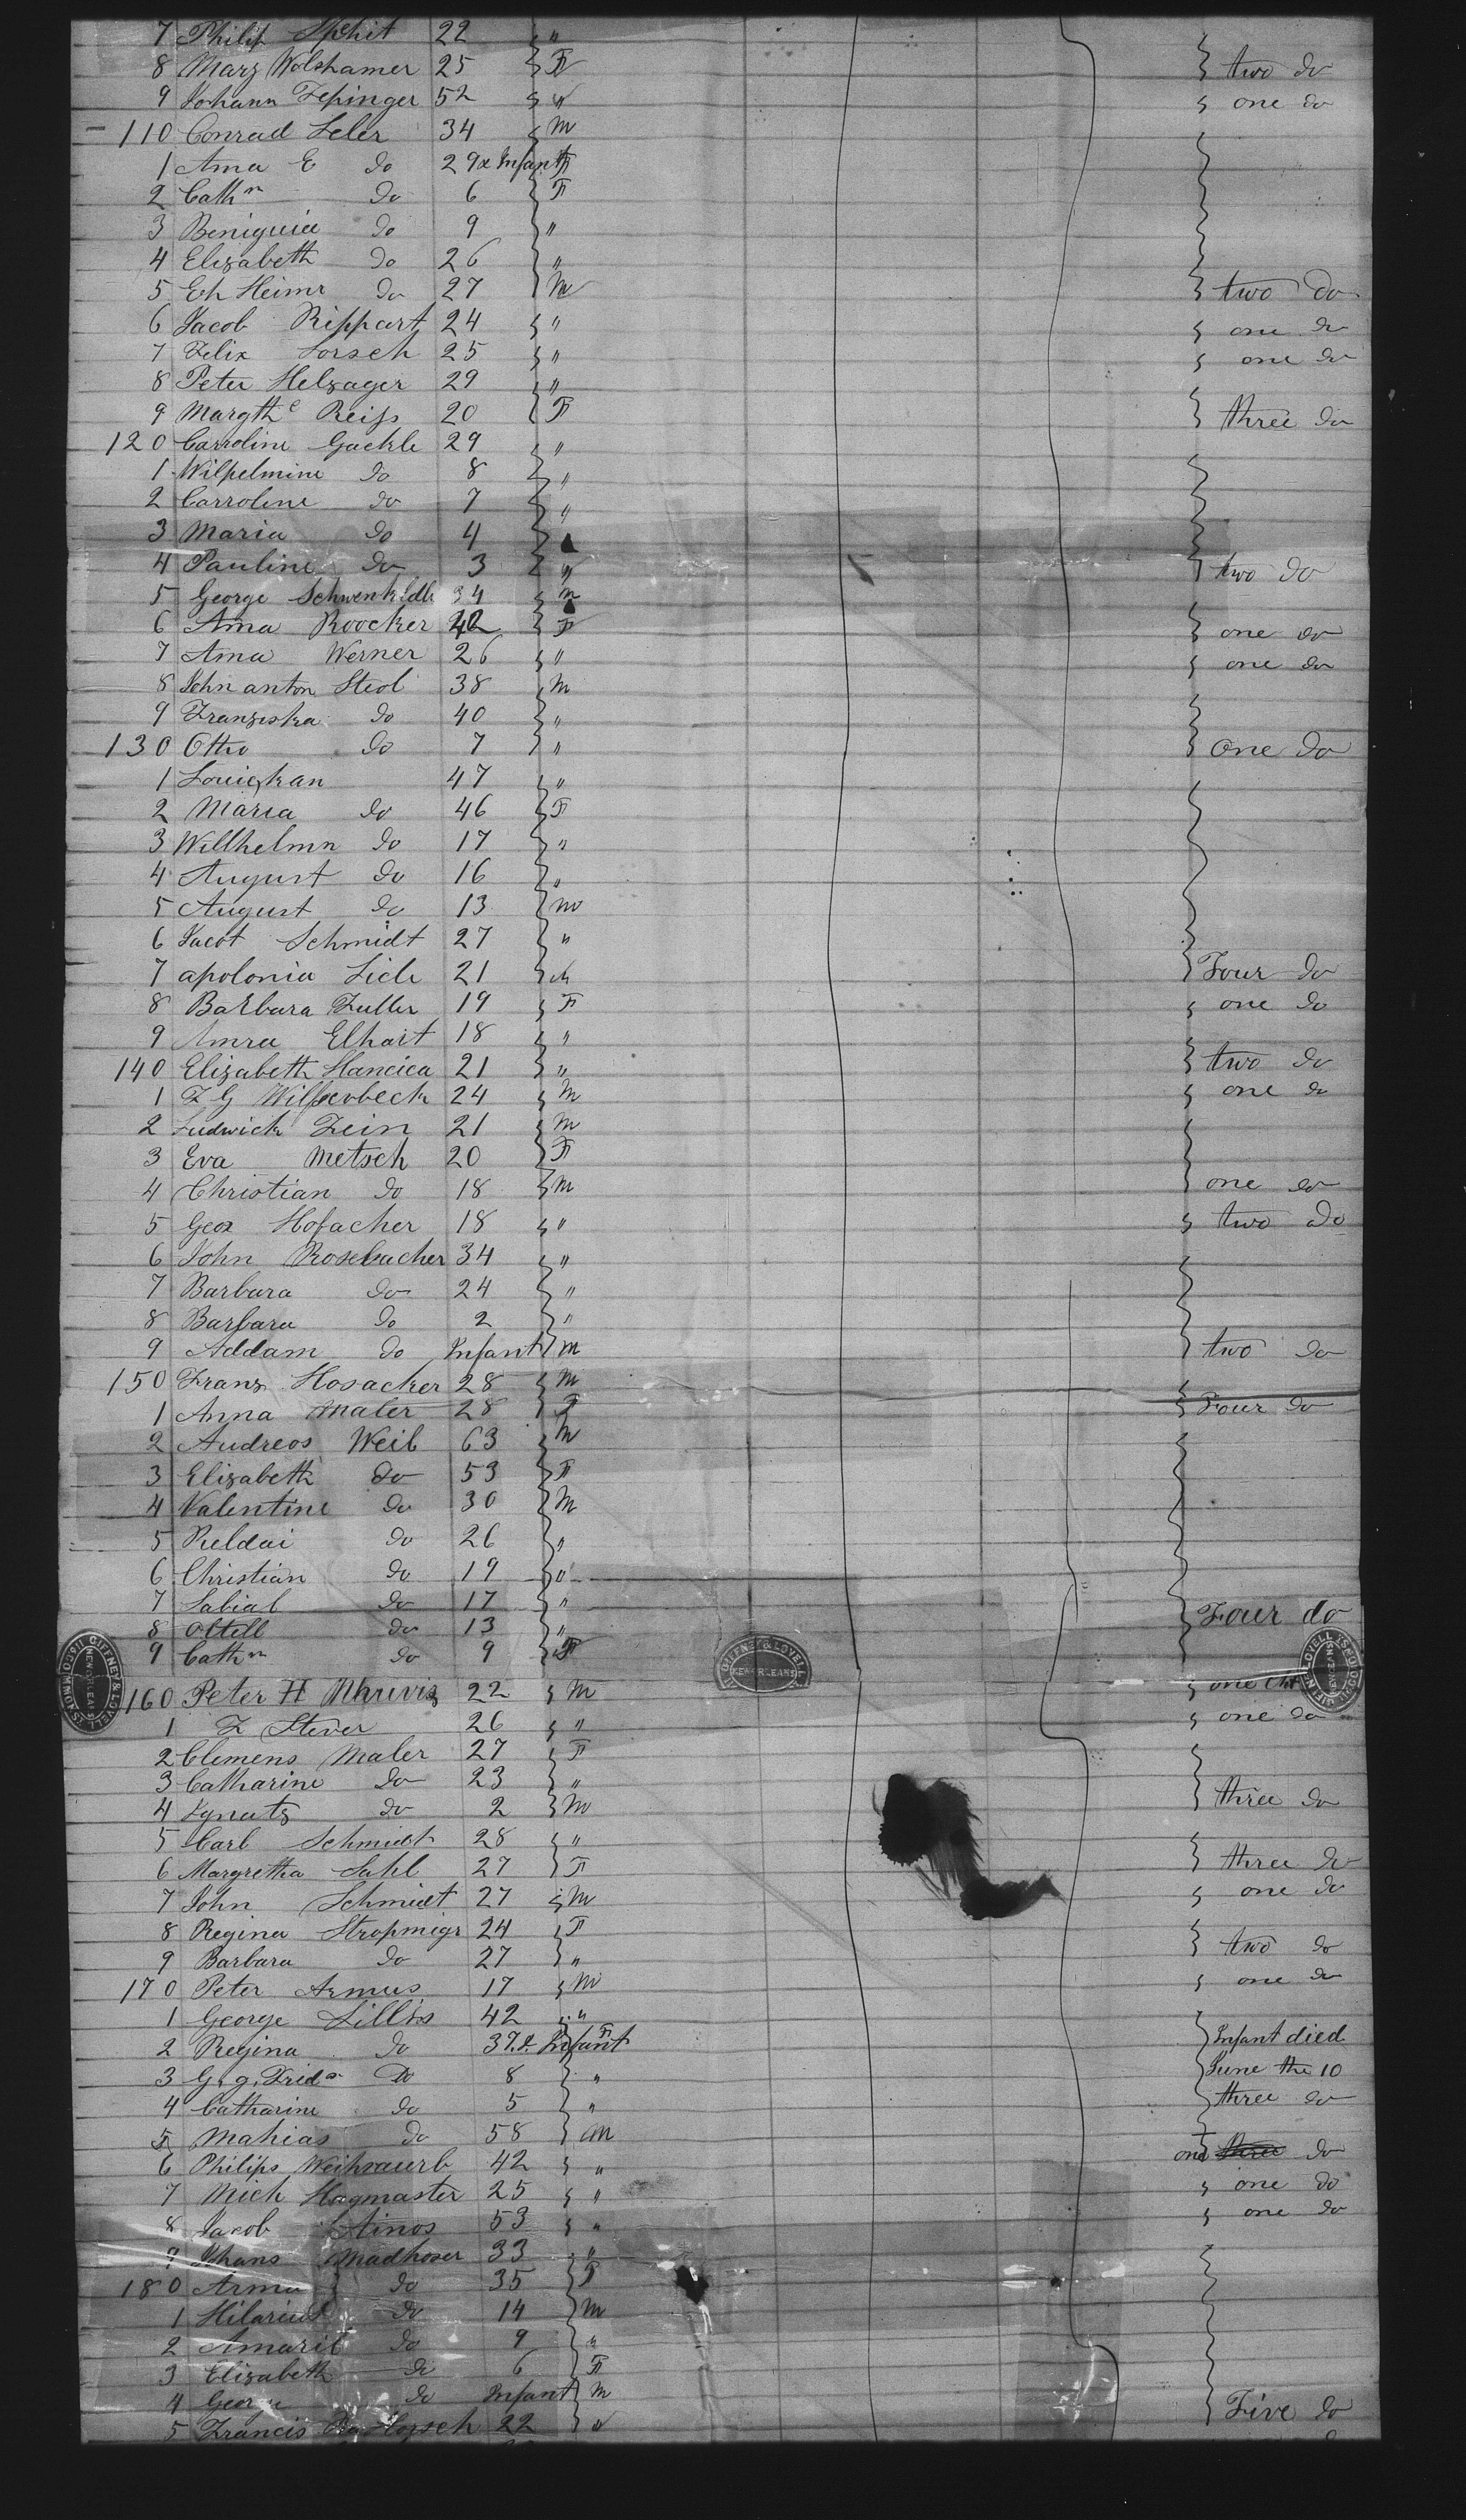 7 Philip Spehit 22 "
8 Marz Wolshamer 25 F two do
9 Johann Zepinger 52 " one do
110 Conrad Seler 34 m
1 Ama E do 29 & Infant F
2 Cathn do 6 F
3 Beniguia do 9 "
4 Elizabeth do 26 "
5 Eh Heimr do 27 M two do
6 Jacob Rippart 24 " one do
7 Felix Lorsch 25 " one do
8 Peter Helzager 29 "
9 Margthe Reifs 20 F three do
120 Carroline Gackle 29 "
1 Wilpelmine do 8 "
2 Carroline do 7 "
3 Maria do 4
4 Pauline do 3 " two do
5 George Schwenkldle 34 m
6 Ama Roocker 42 F one do
7 Ama Werner 26 " one do
8 John anton Steol 38 m
9 Franziska do 40 "
130 Otho do 7 " One do
1 47 "
2 Maria do 46 F
3 Willhelmn do 17 "
4 August do 16 "
5 August do 13 m
6 Jacot Schmidt 27 "
7 apolonia Licle 21 Four do
8 Barbara Fuller 19 F one do
9 Amra Elhart 18 "
140 Elizabeth Hancica 21 " two do
1 F G 24 M one do
2 Ludwick Fein 21 M
3 Eva Metsch 20 F
4 Christian do 18 m one do
5 Geox Hofacher 18 " two do
6 John Rosebacher 34 "
7 Barbara do 24 "
8 Barbara do 2 "
9 Addam do Infant m two do
150 Franz Hosacker 28 m
1 Anna Maler 28 F Four do
2 Audreos Weil 63 M
3 Elizabeth do 53 F
4 Valentine do 30 M
5 Reldai do 26 "
6 Christian do 19 "
7 Sabial do 17 " Four do
8 Ottill do 13 "
9 Cathn do 9 F
GIFFNEY & LOVELL NEW ORLEANS
160 Peter H 22 M one
1 F Stever 26 " one do
2 Clemens Maler 27 F
3 Catharine do 23 "
4 Ignatz do 2 M three do
5 Carl Schmidt 28 "
6 Margretha Sahl 27 F three do
7 John Schmidt 27 M one do
8 Regina Stropmigr 24 F
9 Barbara do 27 " two do
170 Peter Armus 17 M one do
1 George Lillis 42 "
2 Regina do 37 & Infant F Infant died
3 G. g. Frid do 8 " June the 10
4 Catharine do 5 " three do
5 Mahias do 58 m
6 Philips Weihraurb 42 " one three do
7 Mich Hagmaster 25 " one do
8 Jacob Ainos 53 " one do
9 Johans Madhoser 33 "
180 Arma do 35 F
1 Hilarius do 14 m
2 Amaril do 9 "
3 Elizabeth do 6 F
4 George do Infant m
5 Francis Horsch 22 " Five do